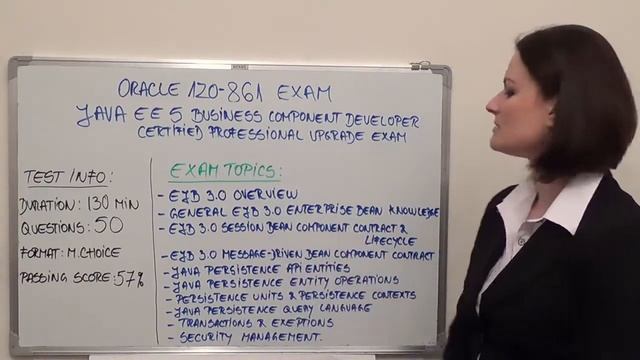 ORACLE 1Z0-861 EXAM
JAVA EE 5 BUSINESS COMPONENT DEVELOPER
CERTIFIED PROFESSIONAL UPGRADE EXAM
TEST INFO:
DURATION: 130 MIN
QUESTIONS: 50
FORMAT: M.CHOICE
PASSING SCORE: 57%
EXAM TOPICS:
- EJB 3.0 OVERVIEW
- GENERAL EJB 3.0 ENTERPRISE BEAN KNOWLEDGE
- EJB 3.0 SESSION BEAN COMPONENT CONTRACT &
LIFECYCLE
- EJB 3.0 MESSAGE-DRIVEN BEAN COMPONENT CONTRACT
- JAVA PERSISTENCE API ENTITIES
- JAVA PERSISTENCE ENTITY OPERATIONS
- PERSISTENCE UNITS & PERSISTENCE CONTEXTS
- JAVA PERSISTENCE QUERY LANGUAGE
- TRANSACTIONS & EXEPTIONS
- SECURITY MANAGEMENT.